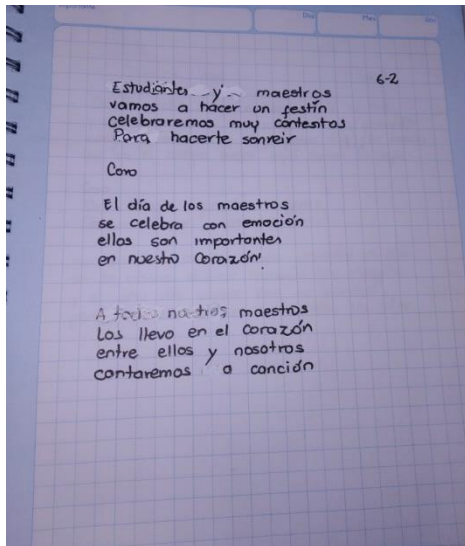 6-2
Estudiantes y maestros
vamos a hacer un festín
celebraremos muy contentos
Para hacerte sonreir
Coro
El día de los maestros
se celebra con emoción
ellos son importantes
en nuestro corazón
A nuestros maestros
Los llevo en el corazón
entre ellos y nosotros
cantaremos a canción